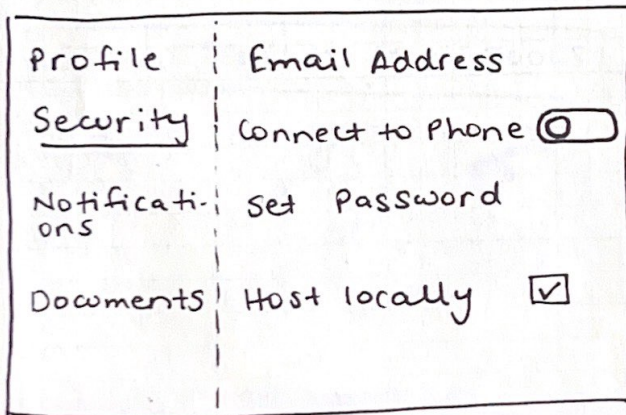 Profile
Security
Notificati-
ons
Documents
Email Address
Connect to Phone
Set Password
Host locally